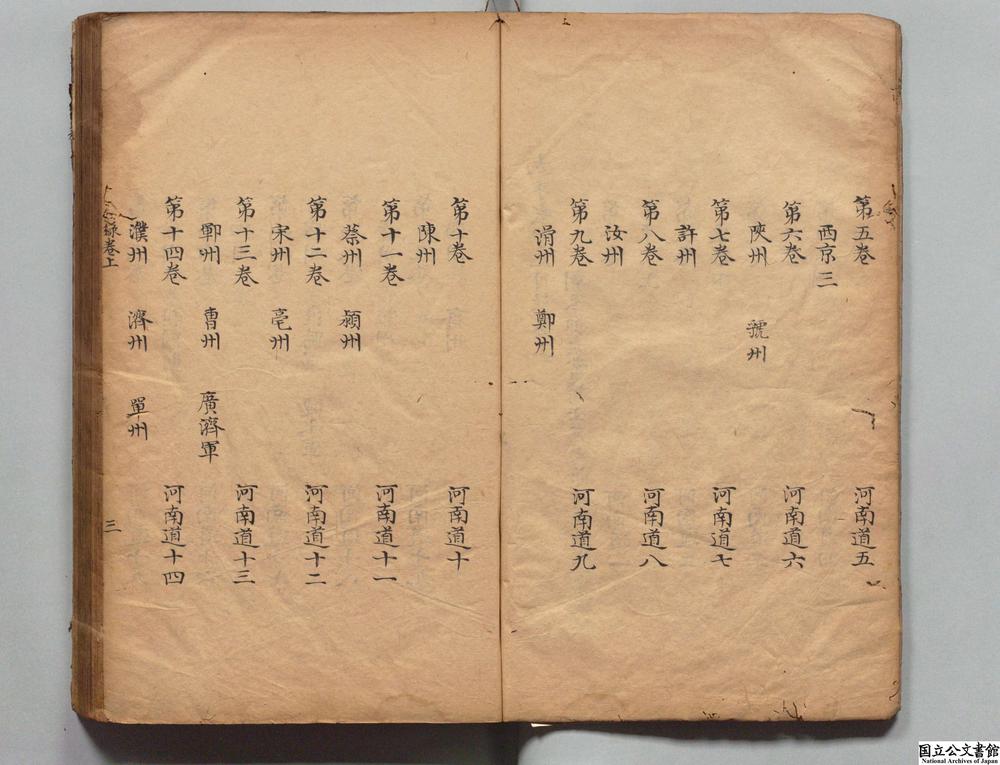 第五卷 河南道五
西京三
第六卷 河南道六
陜州 虢州
第七卷 河南道七
許州
第八卷 河南道八
汝州
第九卷 河南道九
滑州 鄭州
第十卷 河南道十
陳州
第十一卷 河南道十一
蔡州 潁州
第十二卷 河南道十二
宋州 亳州
第十三卷 河南道十三
鄆州 曹州 廣濟軍
第十四卷 河南道十四
濮州 濟州 單州
錄卷上 三
国立公文書館
National Archives of Japan